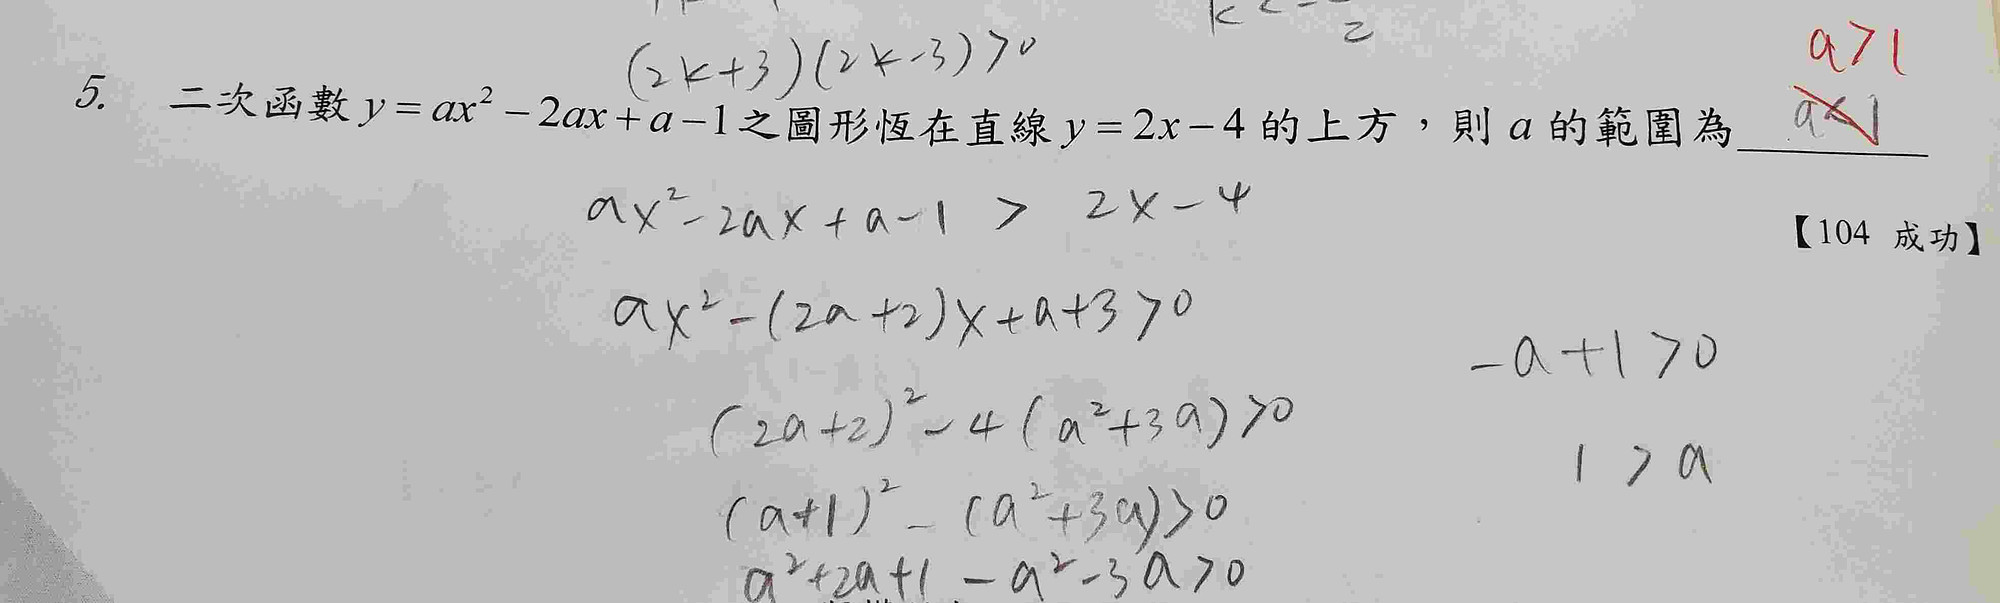 (2k+3)(2k-3)>0
a>1
5. 二次函數 y=ax²-2ax+a-1之圖形恆在直線 y=2x-4 的上方，則 a 的範圍為
a<1
ax²-2ax+a-1 > 2x-4
【104 成功】
ax²-(2a+2)x+a+3>0
-a+1>0
(2a+2)²-4(a²+3a)>0
1>a
(a+1)²-(a²+3a)>0
a²+2a+1-a²-3a>0